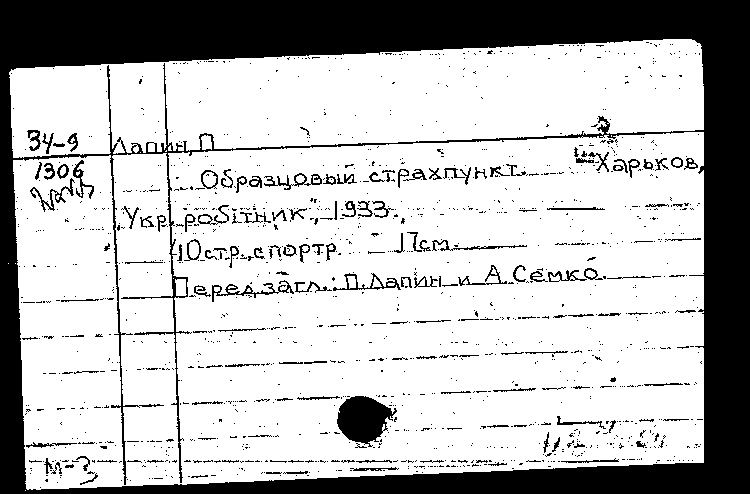 34-9 Лапин, П
1306
Образцовый страхпункт. Харьков,
"Укр. робітник", 1933.,
10стр., с портр. 17см.
Перед загл.: П. Лапин и А. Семко.
М-3